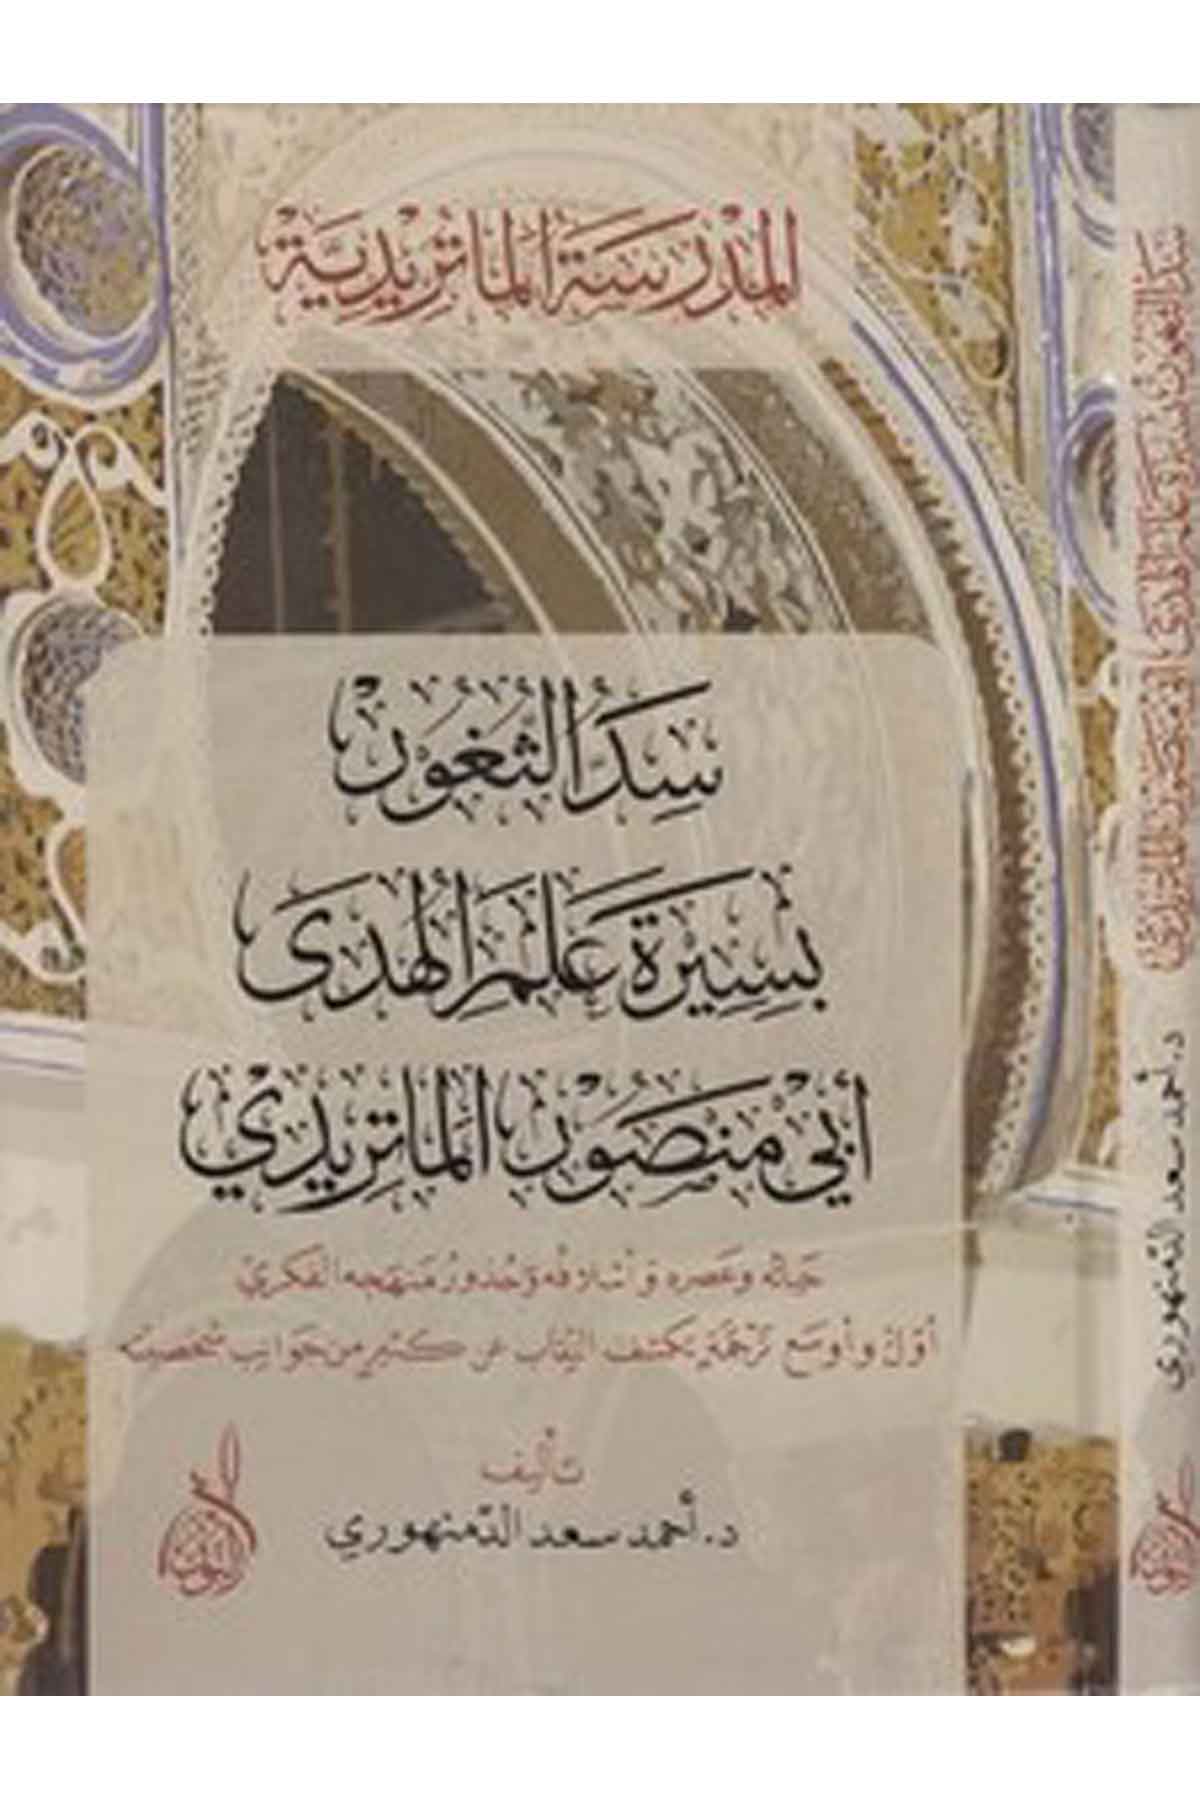 المدرسة الماتريدية
سد الثغور
بسيرة علم الهدى
أبي منصور الماتريدي
حياته وعصره وأسلافه وجذور منهجه الفكري
أول وأوسع ترجمة تكشف النقاب عن كثير من جوانب شخصيته
تأليف
د. أحمد سعد الدمنهوري
سد الثغور بسيرة علم الهدى أبي منصور الماتريدي
د. أحمد سعد الدمنهوري